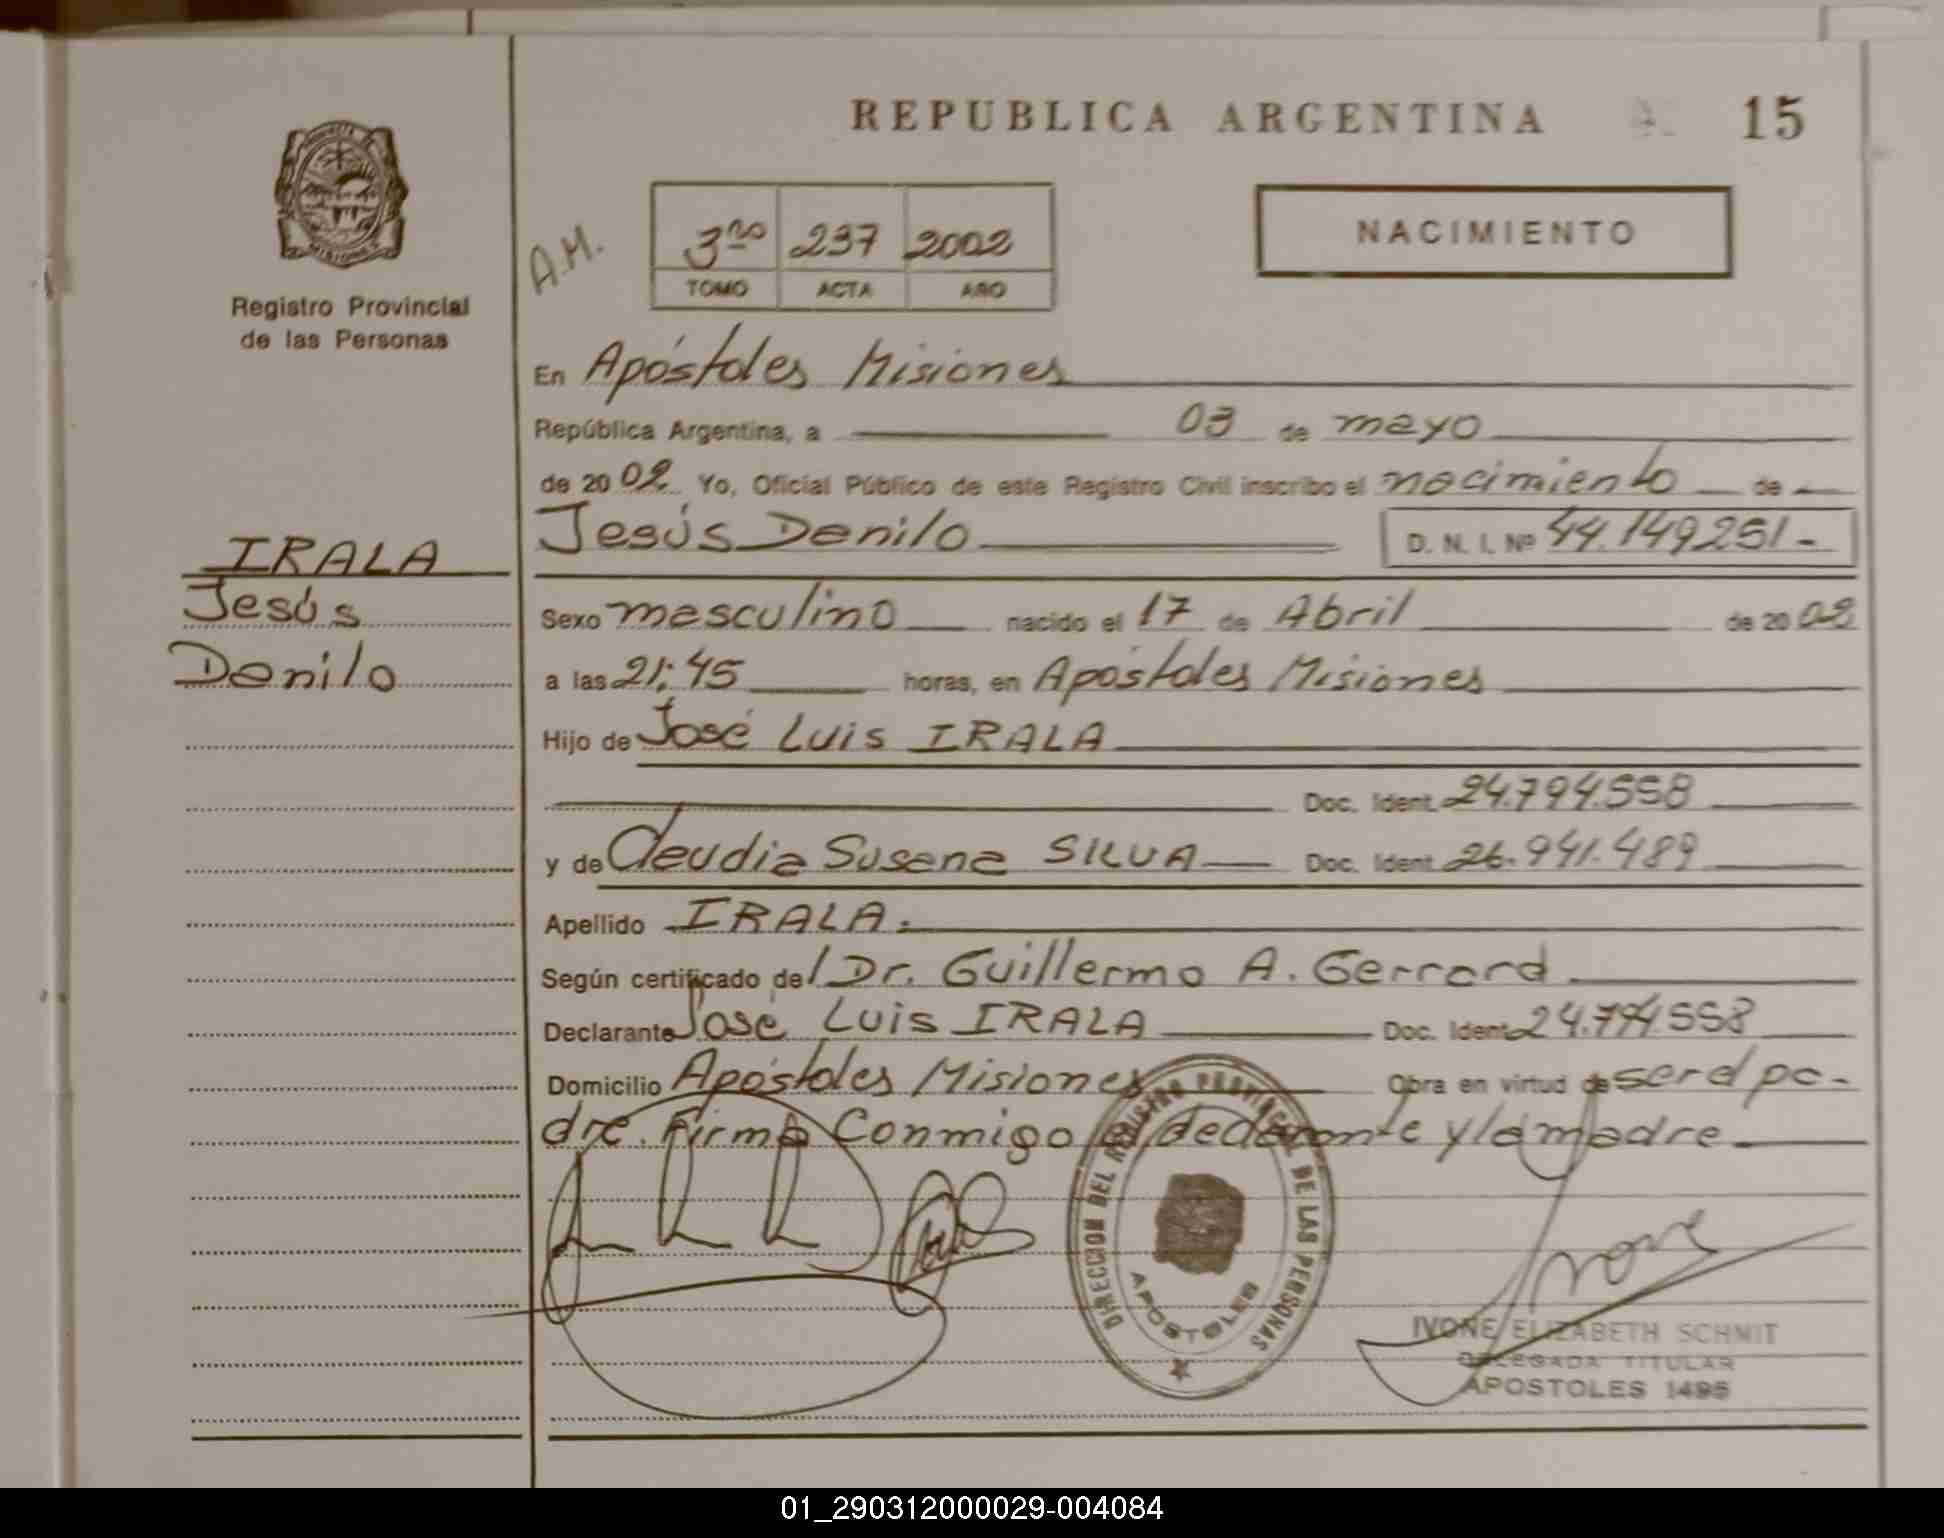 REPUBLICA ARGENTINA
15
Registro Provincial
de las Personas
A.M.
3ro 237 2002
TOMO ACTA AÑO
NACIMIENTO
En Apóstoles Misiones
República Argentina, a 03 de mayo
de 2002 Yo, Oficial Público de este Registro Civil inscribo el nacimiento de
Jesús Danilo D. N. I. Nº 44.149.251-
IRALA
Jesús
Danilo
Sexo masculino nacido el 17 de Abril de 2002
a las 21:45 horas, en Apóstoles Misiones
Hijo de José Luis IRALA
Doc. Ident. 24.794.558
y de Claudia Susana SILVA Doc. Ident. 26.941.489
Apellido IRALA.
Según certificado del Dr. Guillermo A. Gerrard
Declarante José Luis IRALA Doc. Ident. 24.794.558
Domicilio Apóstoles Misiones Obra en virtud de ser el pa-
dre. Firma Conmigo el declarante y la madre
DIRECCION DEL REGISTRO PROVINCIAL DE LAS PERSONAS
APOSTOLES
Ivone
IVONE ELIZABETH SCHMIT
DELEGADA TITULAR
APOSTOLES 1495
01_290312000029-004084